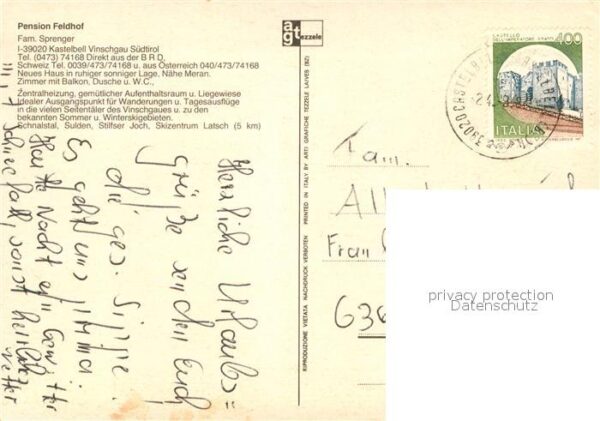 Pension Feldhof
Fam. Sprenger
I-39020 Kastelbell Vinschgau Südtirol
Tel. (0473) 74168 Direkt aus der B R D,
Schweiz Tel. 0039/473/74168 u. aus Österreich 040/473/74168
Neues Haus in ruhiger sonniger Lage. Nähe Meran.
Zimmer mit Balkon, Dusche u. W.C.,
Zentralheizung, gemütlicher Aufenthaltsraum u. Liegewiese
Idealer Ausgangspunkt für Wanderungen u. Tagesausflüge
in die vielen Seitentäler des Vinschgaues u. zu den
bekannten Sommer u. Winterskigebieten.
Schnalstal, Sulden, Stilfser Joch, Skizentrum Latsch (5 km)
Herzliche Urlaubs=
grüße senden Euch
die ges. Sippe.
Es geht uns prima.
Heute Nacht ein Gewitter
mit Schneefall, sonst herrliches
Wetter
RIPRODUZIONE VIETATA NACHDRUCK VERBOTEN PRINTED IN ITALY BY ARTI GRAFICHE TEZZELE LAIVES (BZ)
agt tezzele
CASTELLO
400
ITALIA
39020 CASTELB
Fam.
636
privacy protection
Datenschutz